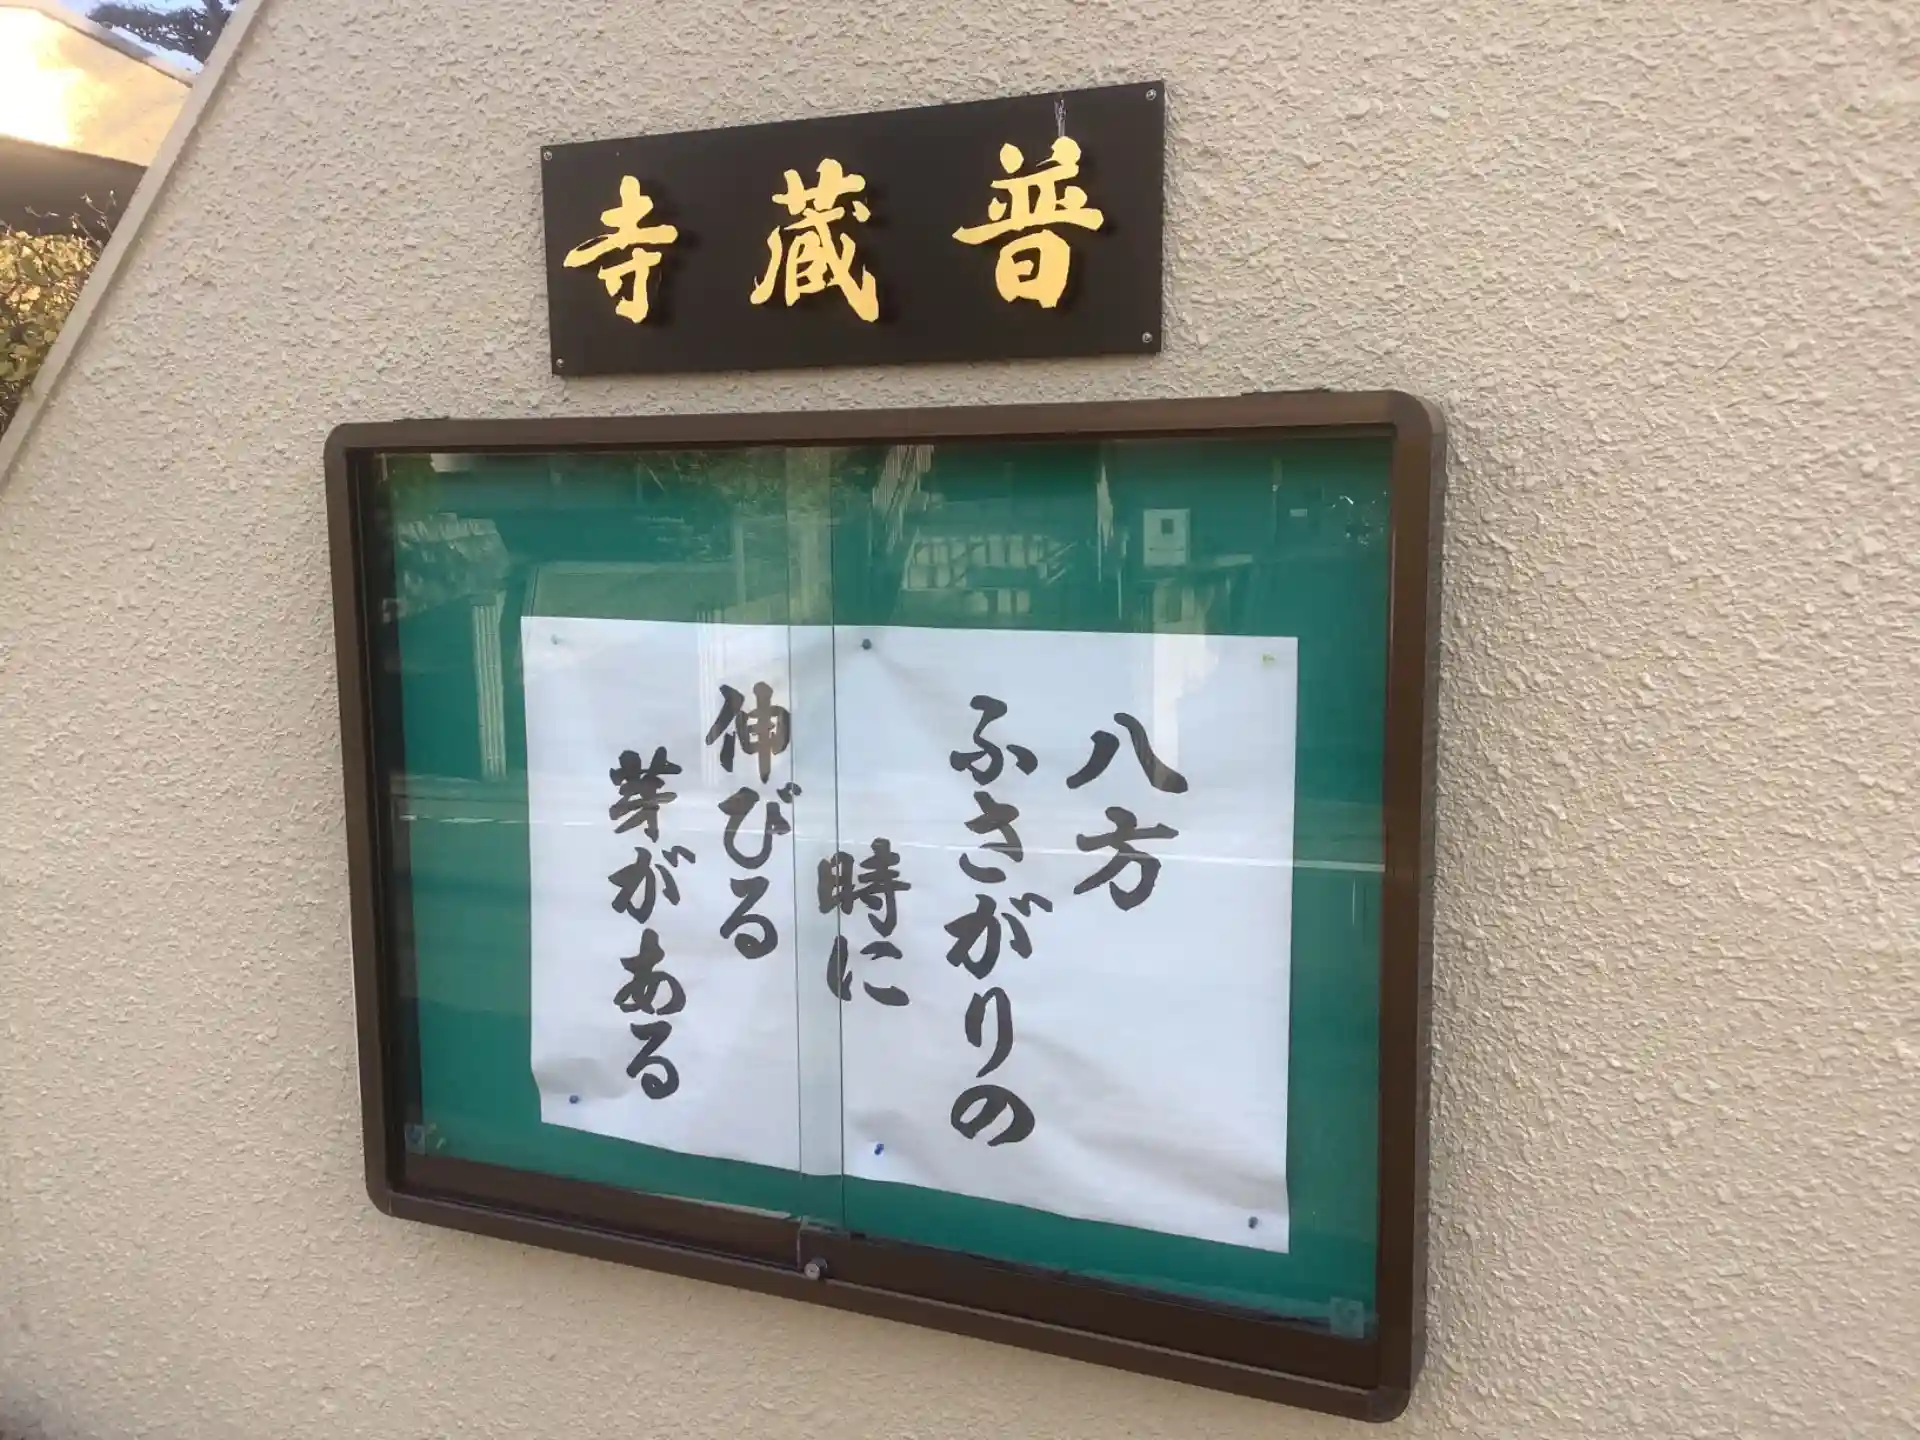 普蔵寺
八方
ふさがりの
時に
伸びる
芽がある